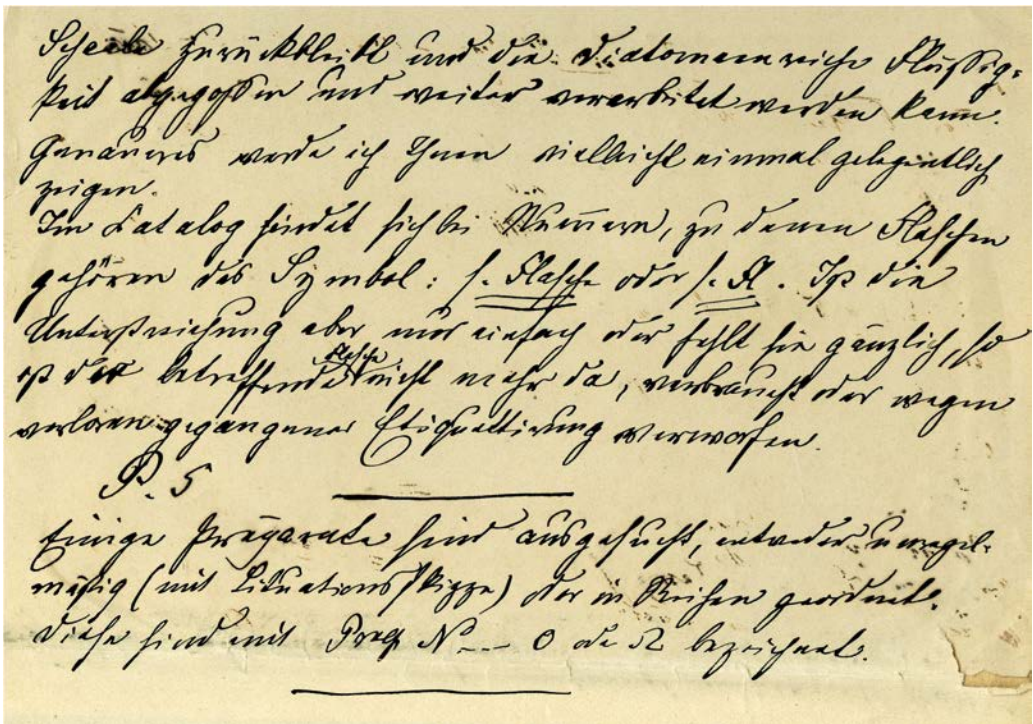 Scheebe zurückbleibt und die diatomeenreiche Flüssig-
keit abgegossen und weiter verarbeitet werden kann.
Genaueres werde ich Ihnen vielleicht einmal gelegentlich
zeigen.
Im Catalog findet sich bei Num̅ern, zu denen Flaschen
gehören das Symbol: s. Flasche oder s. Fl. Ist die
Unterstreichung aber nur einfach oder fehlt sie gänzlich, so
ist die betreffende Flasche nicht mehr da, verbraucht oder wegen
verloren gegangener Etiquettirung verworfen.
P. S
Einige Präparate sind ausgesucht, entweder unregel-
mäßig (mit Situationsskizze) oder in Reihen geordnet.
Diese sind mit Praep No --- O od Ω bezeichnet.